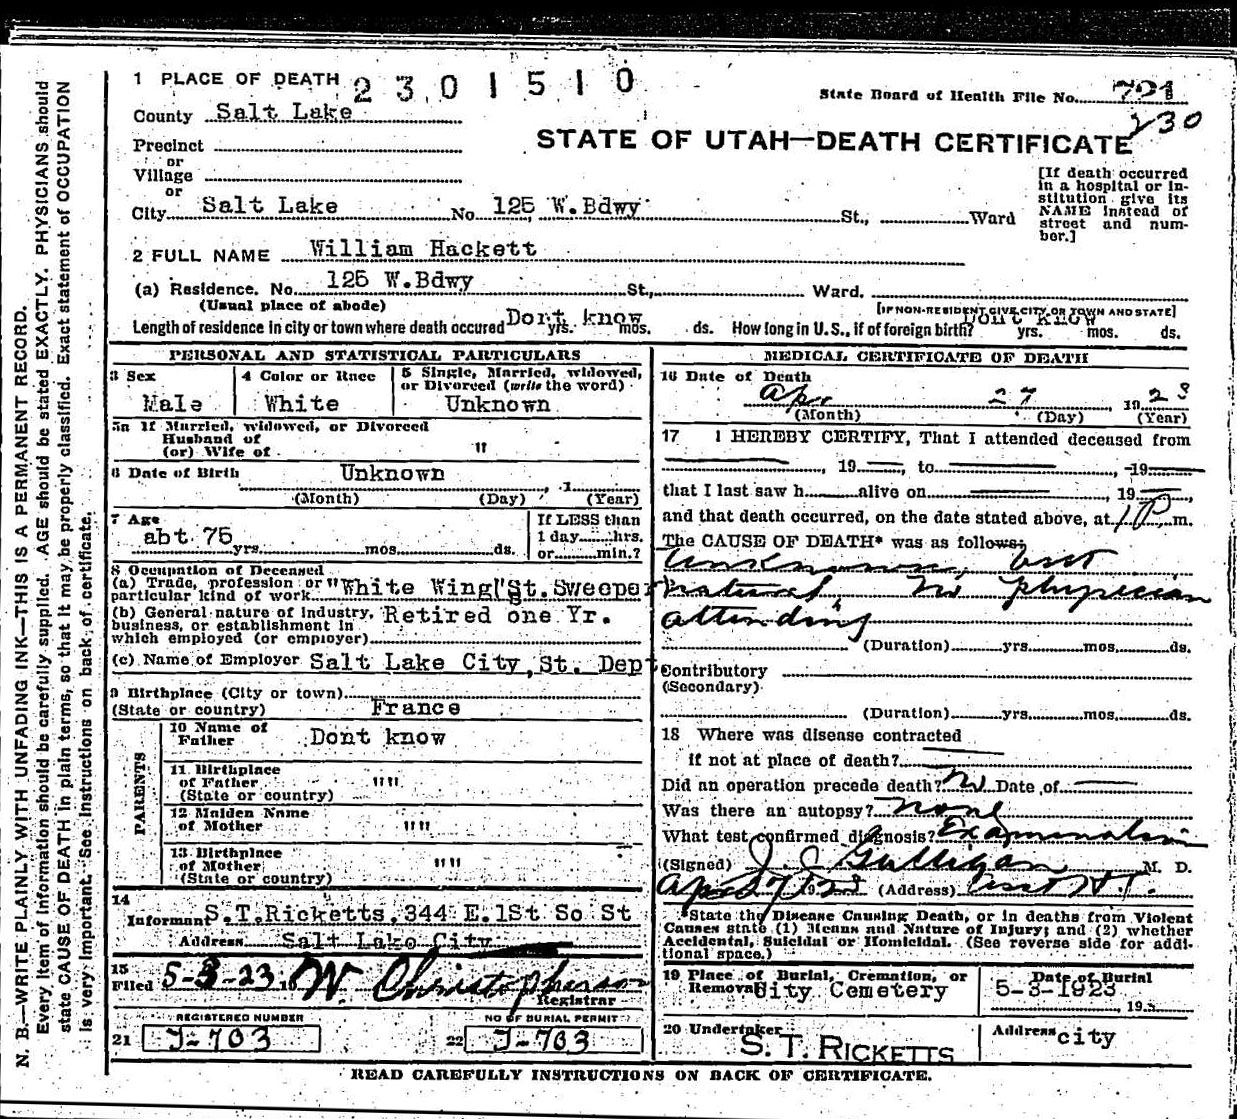 1 PLACE OF DEATH 2301510
State Board of Health File No. 701
230
County Salt Lake
STATE OF UTAH—DEATH CERTIFICATE
Precinct
or
Village
or
City Salt Lake No. 125 W.Bdwy St., Ward
[If death occurred in a hospital or institution give its NAME instead of street and number.]
2 FULL NAME William Hackett
(a) Residence. No. 125 W.Bdwy St., Ward.
(Usual place of abode) [IF NON-RESIDENT GIVE CITY OR TOWN AND STATE]
Length of residence in city or town where death occured Dont know yrs. mos. ds. How long in U.S., if of foreign birth? Dont know yrs. mos. ds.
PERSONAL AND STATISTICAL PARTICULARS
3 Sex Male
4 Color or Race White
5 Single, Married, widowed, or Divorced (write the word) Unknown
5a If Married, widowed, or Divorced
Husband of
(or) Wife of "
6 Date of Birth Unknown , 1
(Month) (Day) (Year)
7 Age
abt 75 yrs. mos. ds.
If LESS than
1 day hrs.
or min.?
8 Occupation of Deceased
(a) Trade, profession or particular kind of work "White Wing" St. Sweeper
(b) General nature of Industry, business, or establishment in which employed (or employer) Retired one Yr.
(c) Name of Employer Salt Lake City, St. Dept
9 Birthplace (City or town)
(State or country) France
PARENTS
10 Name of Father Dont know
11 Birthplace of Father (State or country) ""
12 Maiden Name of Mother ""
13 Birthplace of Mother (State or country) ""
14
Informant S.T.Ricketts, 344 E.1St So St
Address Salt Lake City
15
Filed 5-3-23 19 W. Christopherson
Registrar
REGISTERED NUMBER NO OF BURIAL PERMIT
21 J-703 22 J-703
MEDICAL CERTIFICATE OF DEATH
16 Date of Death
Apr 27, 1923
(Month) (Day) (Year)
17 I HEREBY CERTIFY, That I attended deceased from
, 19 , to , 19
that I last saw h alive on , 19 ,
and that death occurred, on the date stated above, at 1 P m.
The CAUSE OF DEATH* was as follows:
Unknown, but
natural, no physician
attending
(Duration) yrs. mos. ds.
Contributory
(Secondary)
(Duration) yrs. mos. ds.
18 Where was disease contracted
if not at place of death?
Did an operation precede death? No Date of
Was there an autopsy? none
What test confirmed diagnosis? Examination
(Signed) J. J. Galligan M. D.
Apr 27 1923 (Address) Asst H.
*State the Disease Causing Death, or in deaths from Violent
Causes state (1) Means and Nature of Injury; and (2) whether
Accidental, Suicidal or Homicidal. (See reverse side for addi-
tional space.)
19 Place of Burial, Cremation, or Removal City Cemetery
Date of Burial 5-3-1923 , 19
20 Undertaker S. T. RICKETTS
Address city
READ CAREFULLY INSTRUCTIONS ON BACK OF CERTIFICATE.
N. B.—WRITE PLAINLY WITH UNFADING INK—THIS IS A PERMANENT RECORD.
Every item of information should be carefully supplied. AGE should be stated EXACTLY. PHYSICIANS should
state CAUSE OF DEATH in plain terms, so that it may be properly classified. Exact statement of OCCUPATION
is very important. See instructions on back of certificate.